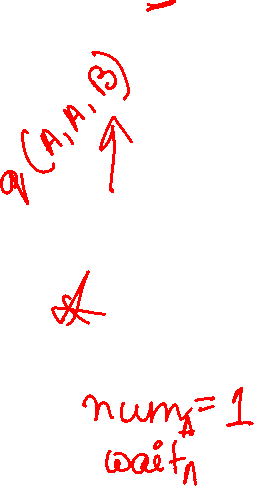 q(A, A, B)
A
num_A = 1
wait_A